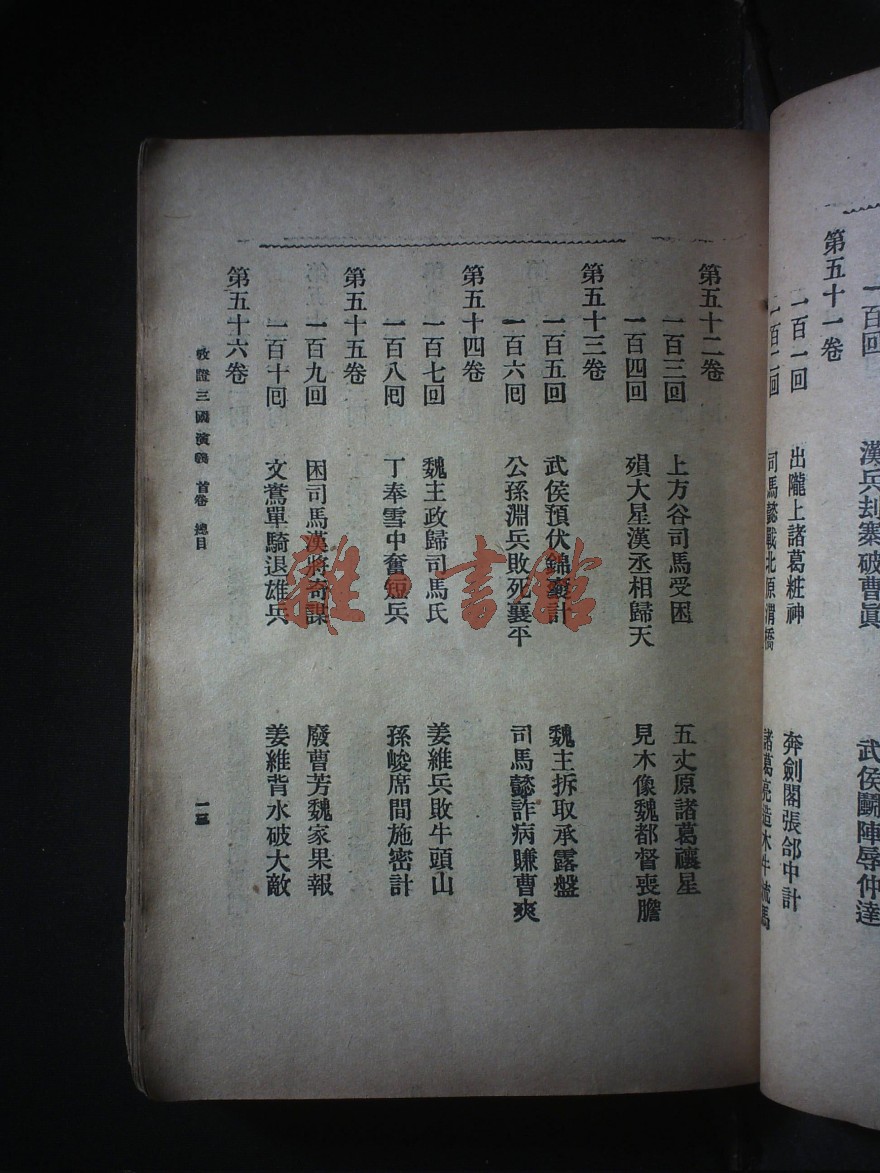 一百回 漢兵刦寨破曹眞 武侯鬭陣辱仲達
第五十一卷
一百一回 出隴上諸葛粧神 奔劍閣張郃中計
一百二回 司馬懿戰北原渭橋 諸葛亮造木牛流馬
第五十二卷
一百三回 上方谷司馬受困 五丈原諸葛禳星
一百四回 殞大星漢丞相歸天 見木像魏都督喪膽
第五十三卷
一百五回 武侯預伏錦囊計 魏主拆取承露盤
一百六囘 公孫淵兵敗死襄平 司馬懿詐病賺曹爽
第五十四卷
一百七回 魏主政歸司馬氏 姜維兵敗牛頭山
一百八囘 丁奉雪中奮短兵 孫峻席間施密計
第五十五卷
一百九回 困司馬漢將奇謀 廢曹芳魏家果報
一百十囘 文鴦單騎退雄兵 姜維背水破大敵
第五十六卷
攷證三國演義 首卷 總目
一三
雜·書館